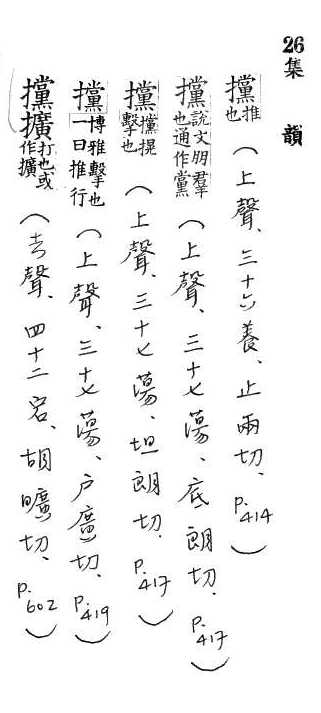 26集 韻
攩推也（上聲、三十六養、止兩切、P.414）
攩說文朋羣也通作黨（上聲、三十七蕩、底朗切、P.417）
攩攩擊也（上聲、三十七蕩、坦朗切、P.417）
攩博雅擊也一曰推行（上聲、三十七蕩、戶廣切、P.419）
攩擴打也或作擴（去聲、四十二宕、胡曠切、P.602）